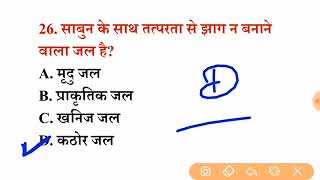 26. साबुन के साथ तत्परता से झाग न बनाने
वाला जल है?
A. मृदु जल
B. प्राकृतिक जल
C. खनिज जल
D. कठोर जल
D